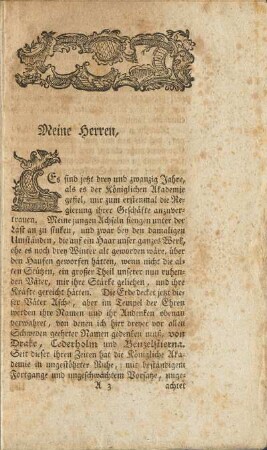 Meine Herren,
Es sind jetzt drey und zwanzig Jahre,
als es der Königlichen Akademie
gefiel, mir zum erstenmal die Re-
gierung ihrer Geschäfte anzuver-
trauen. Meine jungen Achseln fiengen unter der
Last an zu sinken, und zwar bey den damaligen
Umständen, die auf ein Haar unser ganzes Werk,
ehe es noch drey Winter alt geworden wäre, über
den Haufen geworfen hätten, wenn nicht die al-
ten Stützen, ein großer Theil unserer nun ruhen-
den Väter, mir ihre Stärke geliehen, und ihre
Kräfte gereicht hätten. Die Erde decket jetzt die-
ser Väter Asche, aber im Tempel der Ehren
werden ihre Namen und ihr Andenken oben an
verwahret, von denen ich hier dreyer vor allen
Schweden geehrter Namen gedenken muß, von
Drake, Cederholm und Benzelstierna.
Seit dieser ihren Zeiten hat die Königliche Aka-
demie in ungestöhrter Ruhe, mit beständigem
Fortgange und ungeschwächtem Vorsatze, unge-
A 3 achtet